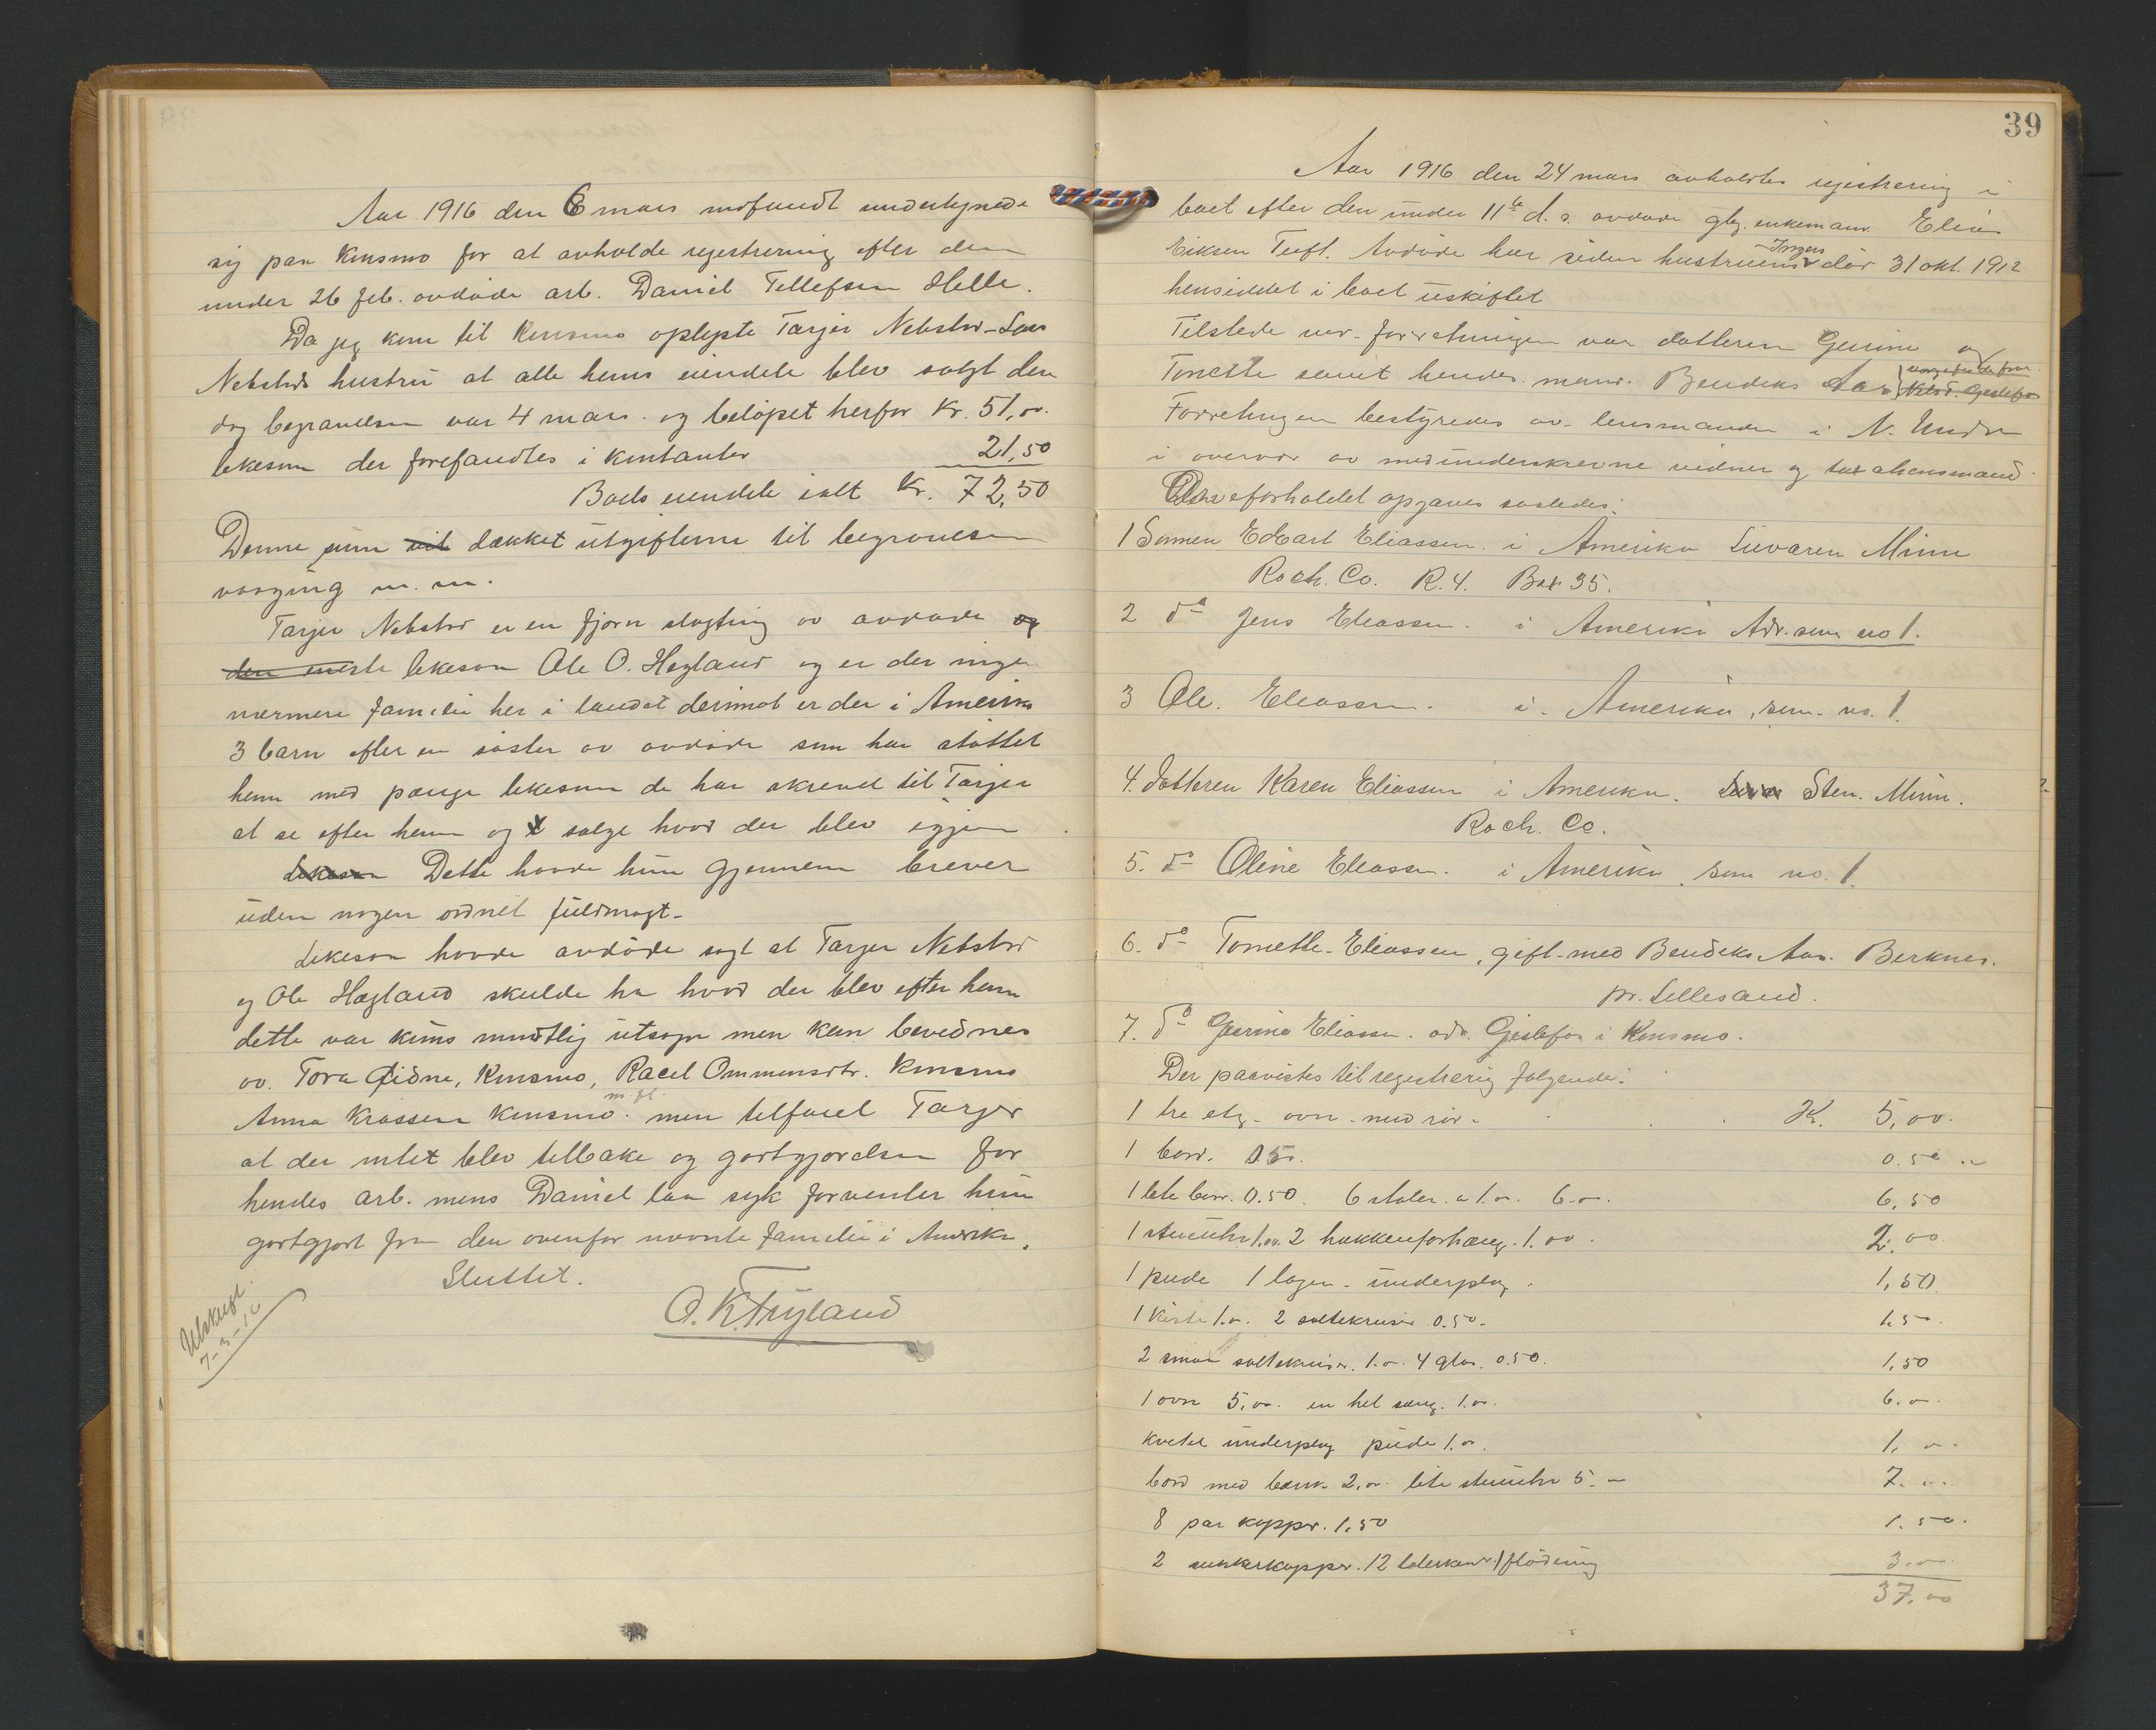 Aar 1916 den 6 mars indfandt undertegnede
sig paa Konsmo for at avholde registrering efter den
under 26 feb. avdøde arb. Daniel Tellefsen Helle.
Da jeg kom til Konsmo oplyste Tarjer Nebstvd-Lars
Nebstvds hustru at alle hans eiendele blev solgt den
dag begravelsen var 4 mars. og beløpet herfor Kr. 51,00.
likesom der forefandtes i kontanter 21,50
Boets eiendele ialt Kr. 72,50
Denne sum vil dækket utgifterne til begravelsen
vasging m. m.
Tarjer Nebstvd er en fjern slægtning av avdøde og
den eneste likesom Ole O. Høgland og er der ingen
nærmere familie her i landet derimot er der i Amerika
3 barn efter en søster av avdøde som har støttet
ham med penge likesom de har skrevet til Tarjer
at se efter ham og sælge hvad der blev igjen
Likesom Dette havde hun gjennem brever
uden nogen ordnet fuldmagt-
Likesom havde avdøde sagt at Tarjer Nebstvd
og Ole Høgland skulde ha hvad der blev efter ham
dette var kuns mundtlig utsagn men kan bevidnes
av. Tora Eidne, Konsmo, Racel Ommensdtr. Konsmo
m. fl.
Anna Krossen Konsmo. men tilføiel Tarjer
at der intet blev tilbake og godtgjørelsen for
hendes arb. mens Daniel laa syk forventer hun
godtgjort fra den ovenfor nævnte familie i Amerika.
Sluttet.
O. K. Tryland
Utskrift
7-3-16
39
Aar 1916 den 24 mars avholdtes registrering i
boet efter den under 11te d. s. avdøde gbr. enkemann Elias
Eiksen Tuft. Avdøde har siden hustruens Ingers død 31 okt. 1912
hensiddet i boet uskiftet
Tilstede ved forretningen var datteren Gurine og
Tonette samt hendes mand. Bendeks Aas
Forretningen bestyredes av lensmanden i N. Undal
i overvær av medunderskrevne vidner og taxationsmænd.
Arveforholdet opgaves saaledes:
1 Sønnen Edvart Eliassen. i Amerika Livaren Minn
Roch. Co. R. 4. Box 35.
2 do Jens Eliassen. i Amerika Adr. som no 1.
3 Ole. Eliassen. i Amerika, som no. 1.
4. datteren Karen Eliassen i Amerika. Sten. Minn.
Roch. Co.
5. do Oline Eliassen. i Amerika. som no. 1.
6. do Tomette Eliassen, gift med Bendeks Aas. Berknes.
pr. Lillesand.
7. do Gurine Eliassen. adr. Gjeslefos i Konsmo.
Der paavistes til registrering følgende:
1 tre etg. ovn med rør. K. 5,00.
1 bord. 0.50
1 lite bor. 0.50. 6 stoler. a 1.00. 6.00. 6,50
1 stueuhr 1.00. 2 hakkenforhæng. 1.00. 2.00
1 pude 1 lagen. underplag. 1,50
1 kiste 1.00. 2 saltekruser 0.50. 1.50.
2 smaa saltekruser. 1.00. 4 glas. 0.50. 1,50
1 ovn 5,00. en hel seng. 1.00. 6.00.
kvetel underplag pude 1.00. 1,00
bord med bænk 2,00. lite stueuhr 5.00 7.00
8 par kopper. 1,50 1.50.
2 sukkerkopper. 12 talerkener. 1 flødemug 3.00.
37.00